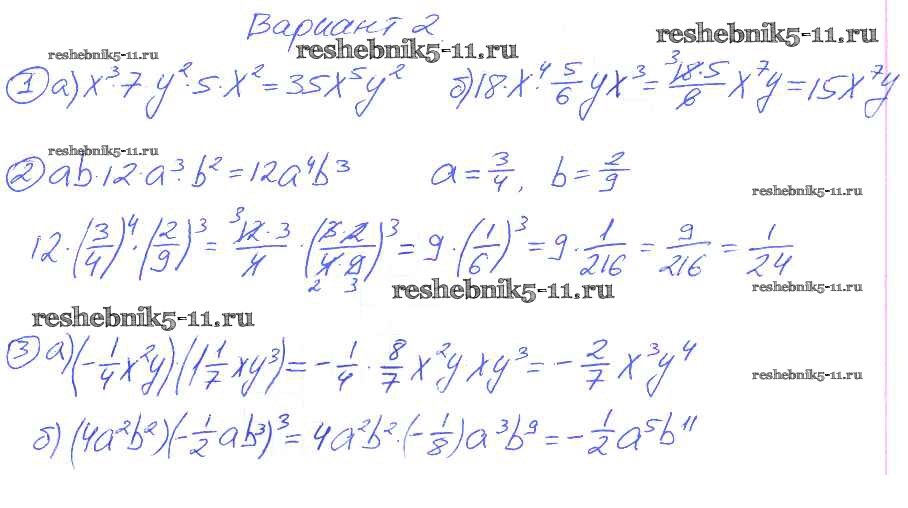 Вариант 2
reshebnik5-11.ru reshebnik5-11.ru reshebnik5-11.ru
① а) x³·7·y²·5·x² = 35x⁵y² б) 18·x⁴·5/6 yx³ = ³18·5/6 x⁷y = 15x⁷y
reshebnik5-11.ru
② ab·12·a³·b² = 12a⁴b³ a = 3/4, b = 2/9
reshebnik5-11.ru
12·(3/4)⁴·(2/9)³ = ³12·3/4·(3·2/4·9)³ = 9·(1/6)³ = 9·1/216 = 9/216 = 1/24
2 3
reshebnik5-11.ru reshebnik5-11.ru
reshebnik5-11.ru
③ а) (-1/4 x²y)(1 1/7 xy³) = -1/4·8/7 x²y xy³ = -2/7 x³y⁴
reshebnik5-11.ru
б) (4a²b²)(-1/2 ab³)³ = 4a²b²·(-1/8)a³b⁹ = -1/2 a⁵b¹¹